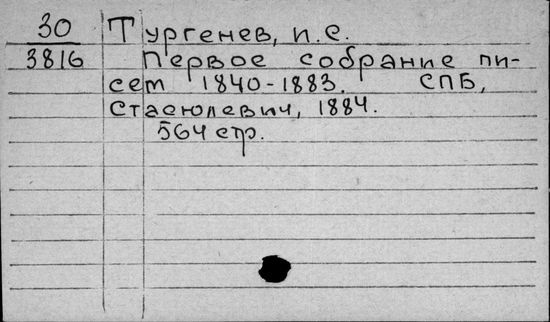 30 Тургенев, И.С.
3816 Первое собрание пи-
сем 1840-1883. СПБ,
Стасюлевич, 1884.
564 стр.